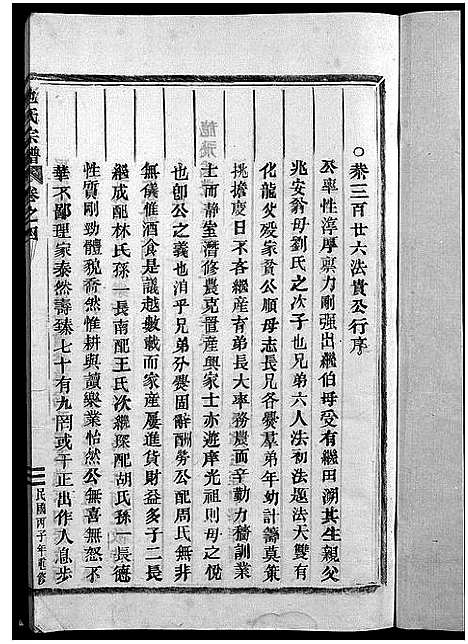 ○恭三百廿六法貴公行序
公率性淳厚禀力剛强出繼伯母受有繼田溯其生親父
兆安翁母劉氏之次子也兄弟六人法初法題法天雙有
化龍父歿家貧公順母志長兄各爨羣弟年幼計籌莫策
挑擔度日不吝繼產育弟長大事務農而辛勤力穡訓業
士而靜室潛修農克置產興家士亦遊庠光祖則母之悅
也卽公之義也洎乎兄弟分爨固辭酬勞公配周氏無非
無儀惟酒食是議越數載而家產屢進貨財益多子二長
繼成配林氏孫一長南配王氏次繼琛配胡氏孫一長德
性質剛勁體貌喬然惟耕與讀樂業怡然公無喜無怒不
華不鄙理家泰然壽臻七十有九罔或干正出作人息步
氏宗譜 卷之四
民國丙子年重修